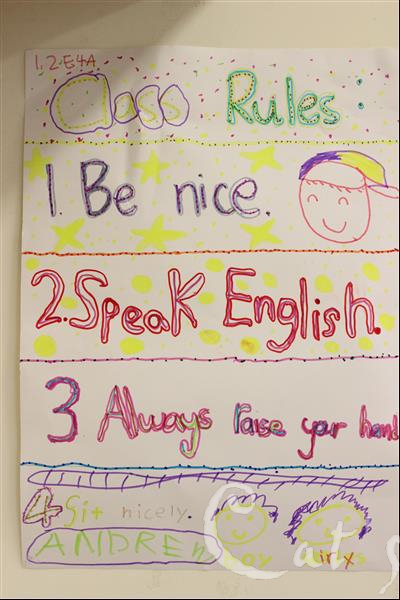 1,2-E4A
Class Rules:
1. Be nice.
2. Speak English.
3 Always raise your hand
4 Sit nicely.
ANDREW
Cats